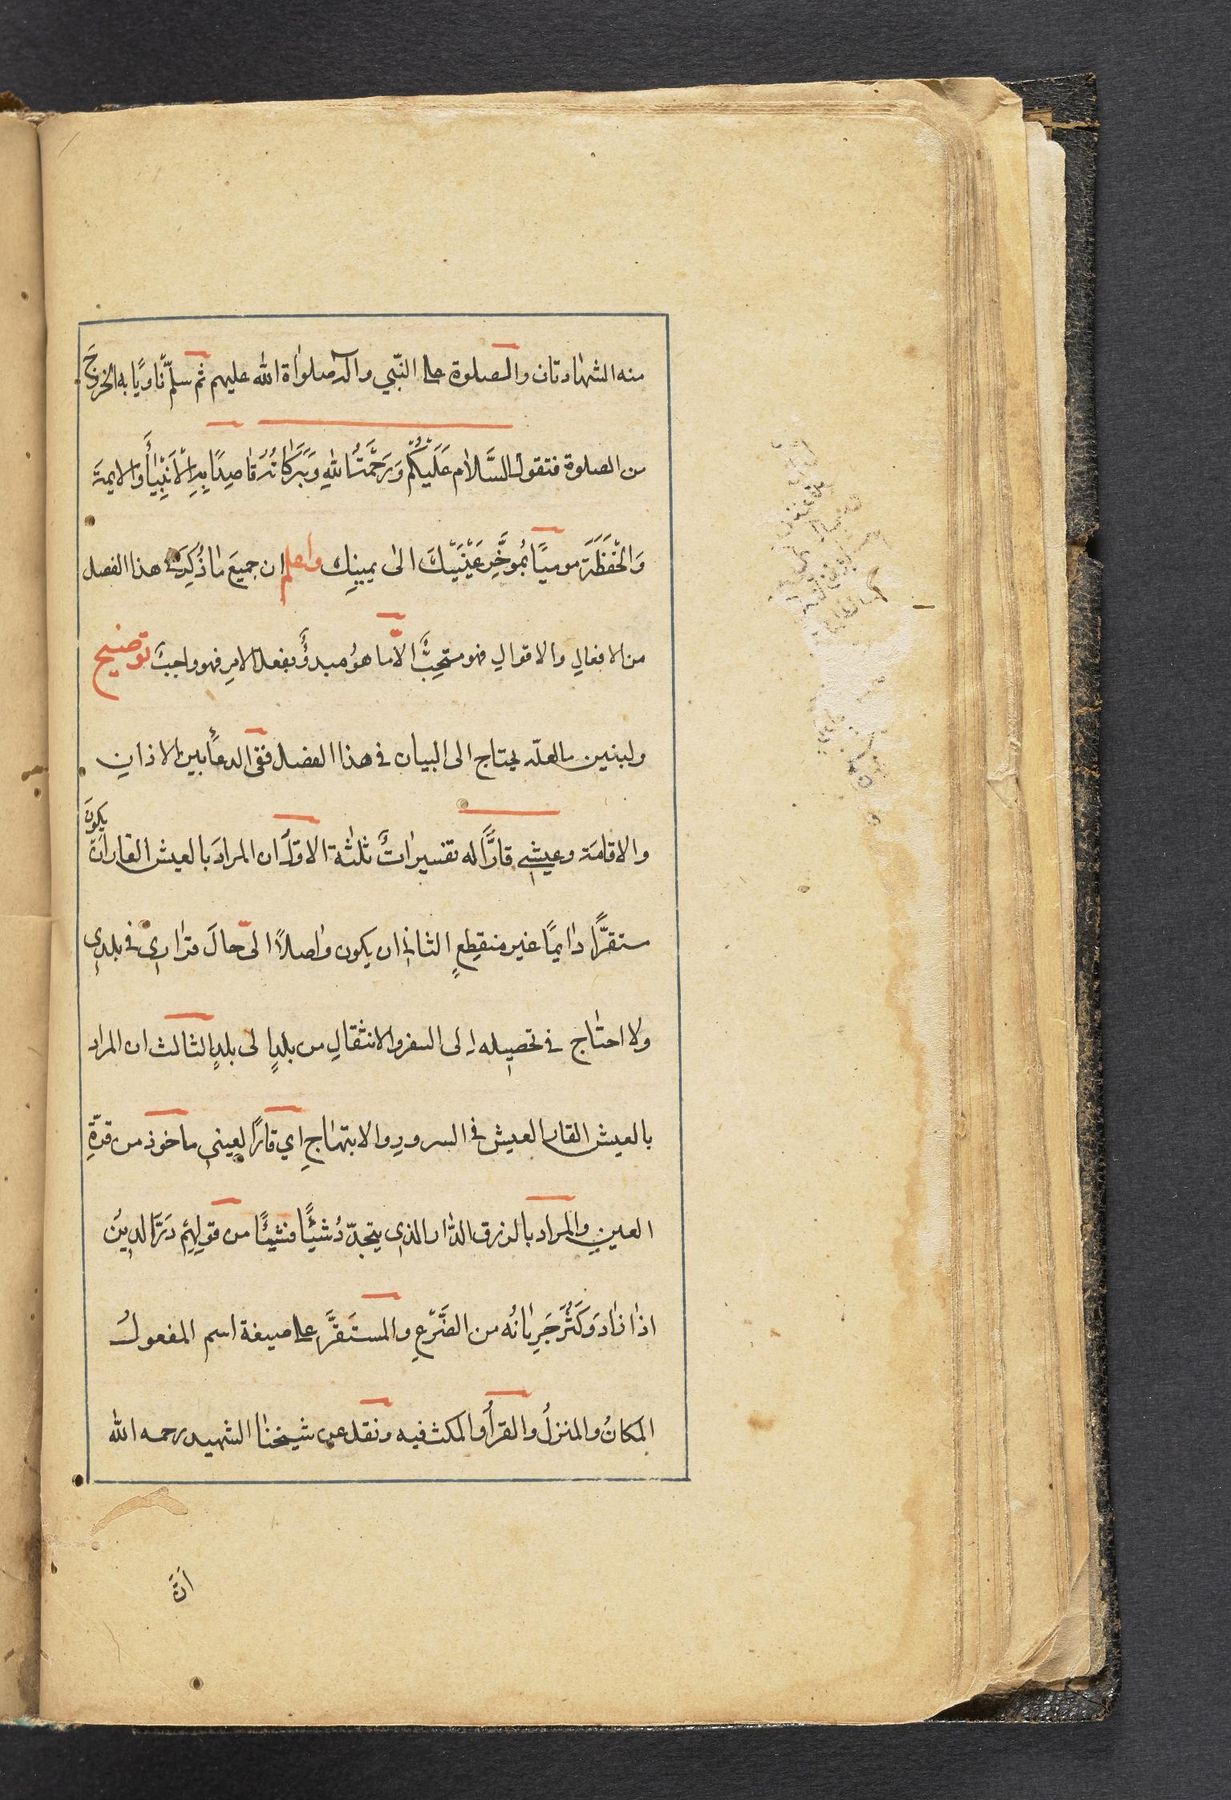 منه الشهادتان والصلوة على النّبي وآله صلواة الله عليهم ثم سلّم ناويًا به الخروجَ
من الصلوة فتقول السَّلام عَلَيكُم وَرَحمَتُ اللهِ وَبَرَكاتُهُ قاصِدًا بِهِ الأنبِيأَ والائمةَ
وَالْحَفَظَةَ موميًا بمُوخَّرِ عَيْنَيْكَ الى يمينِك واعلم ان جميعَ ماذُكِرَ في هذا الفصل
من الافعالِ والاقوالِ فهو مستحِبٌّ الّا ما هوُ مبدوٌ بفعل الامرِ فهو واجبٌ توضيح
ولنبين ما لعلّه يحتاج الى البيان فى هذا الفصل ففى الدعأ بين الاذانِ
والاقامَة وعيشى قارًّا له تفسيراتٌ ثلثة الاوّل ان المرادَ بالعيش القار ان يكونَ
مستقرًّا دايمًا غير منقِطعٍ الثانى ان يكون واصلاً الىّ حالَ قرارى فى بلدى
ولا احتاج فى تحصيله الى السفر والانتقالِ من بلدٍ الى بلدٍ الثالث ان المراد
بالعيش القار العيش فى السرورِ والابتهاجِ اي قارًا لعينى ماخوذ من قرّةِ
العين والمراد بالرزق الدّار الذي يتجدّدُ شيئًا فشيئًا من قولِهِم دَرَّ اللبنُ
اذا زادَ وَكَثُرَ جَرِيانُه من الضَّرْعِ والمستَقرَّ على صيغة اسم المفعولُ
المكانُ والمنزلُ والقرأُ والمكث فيه ونقل عن شيخنا الشهيد رحمه الله
انّ